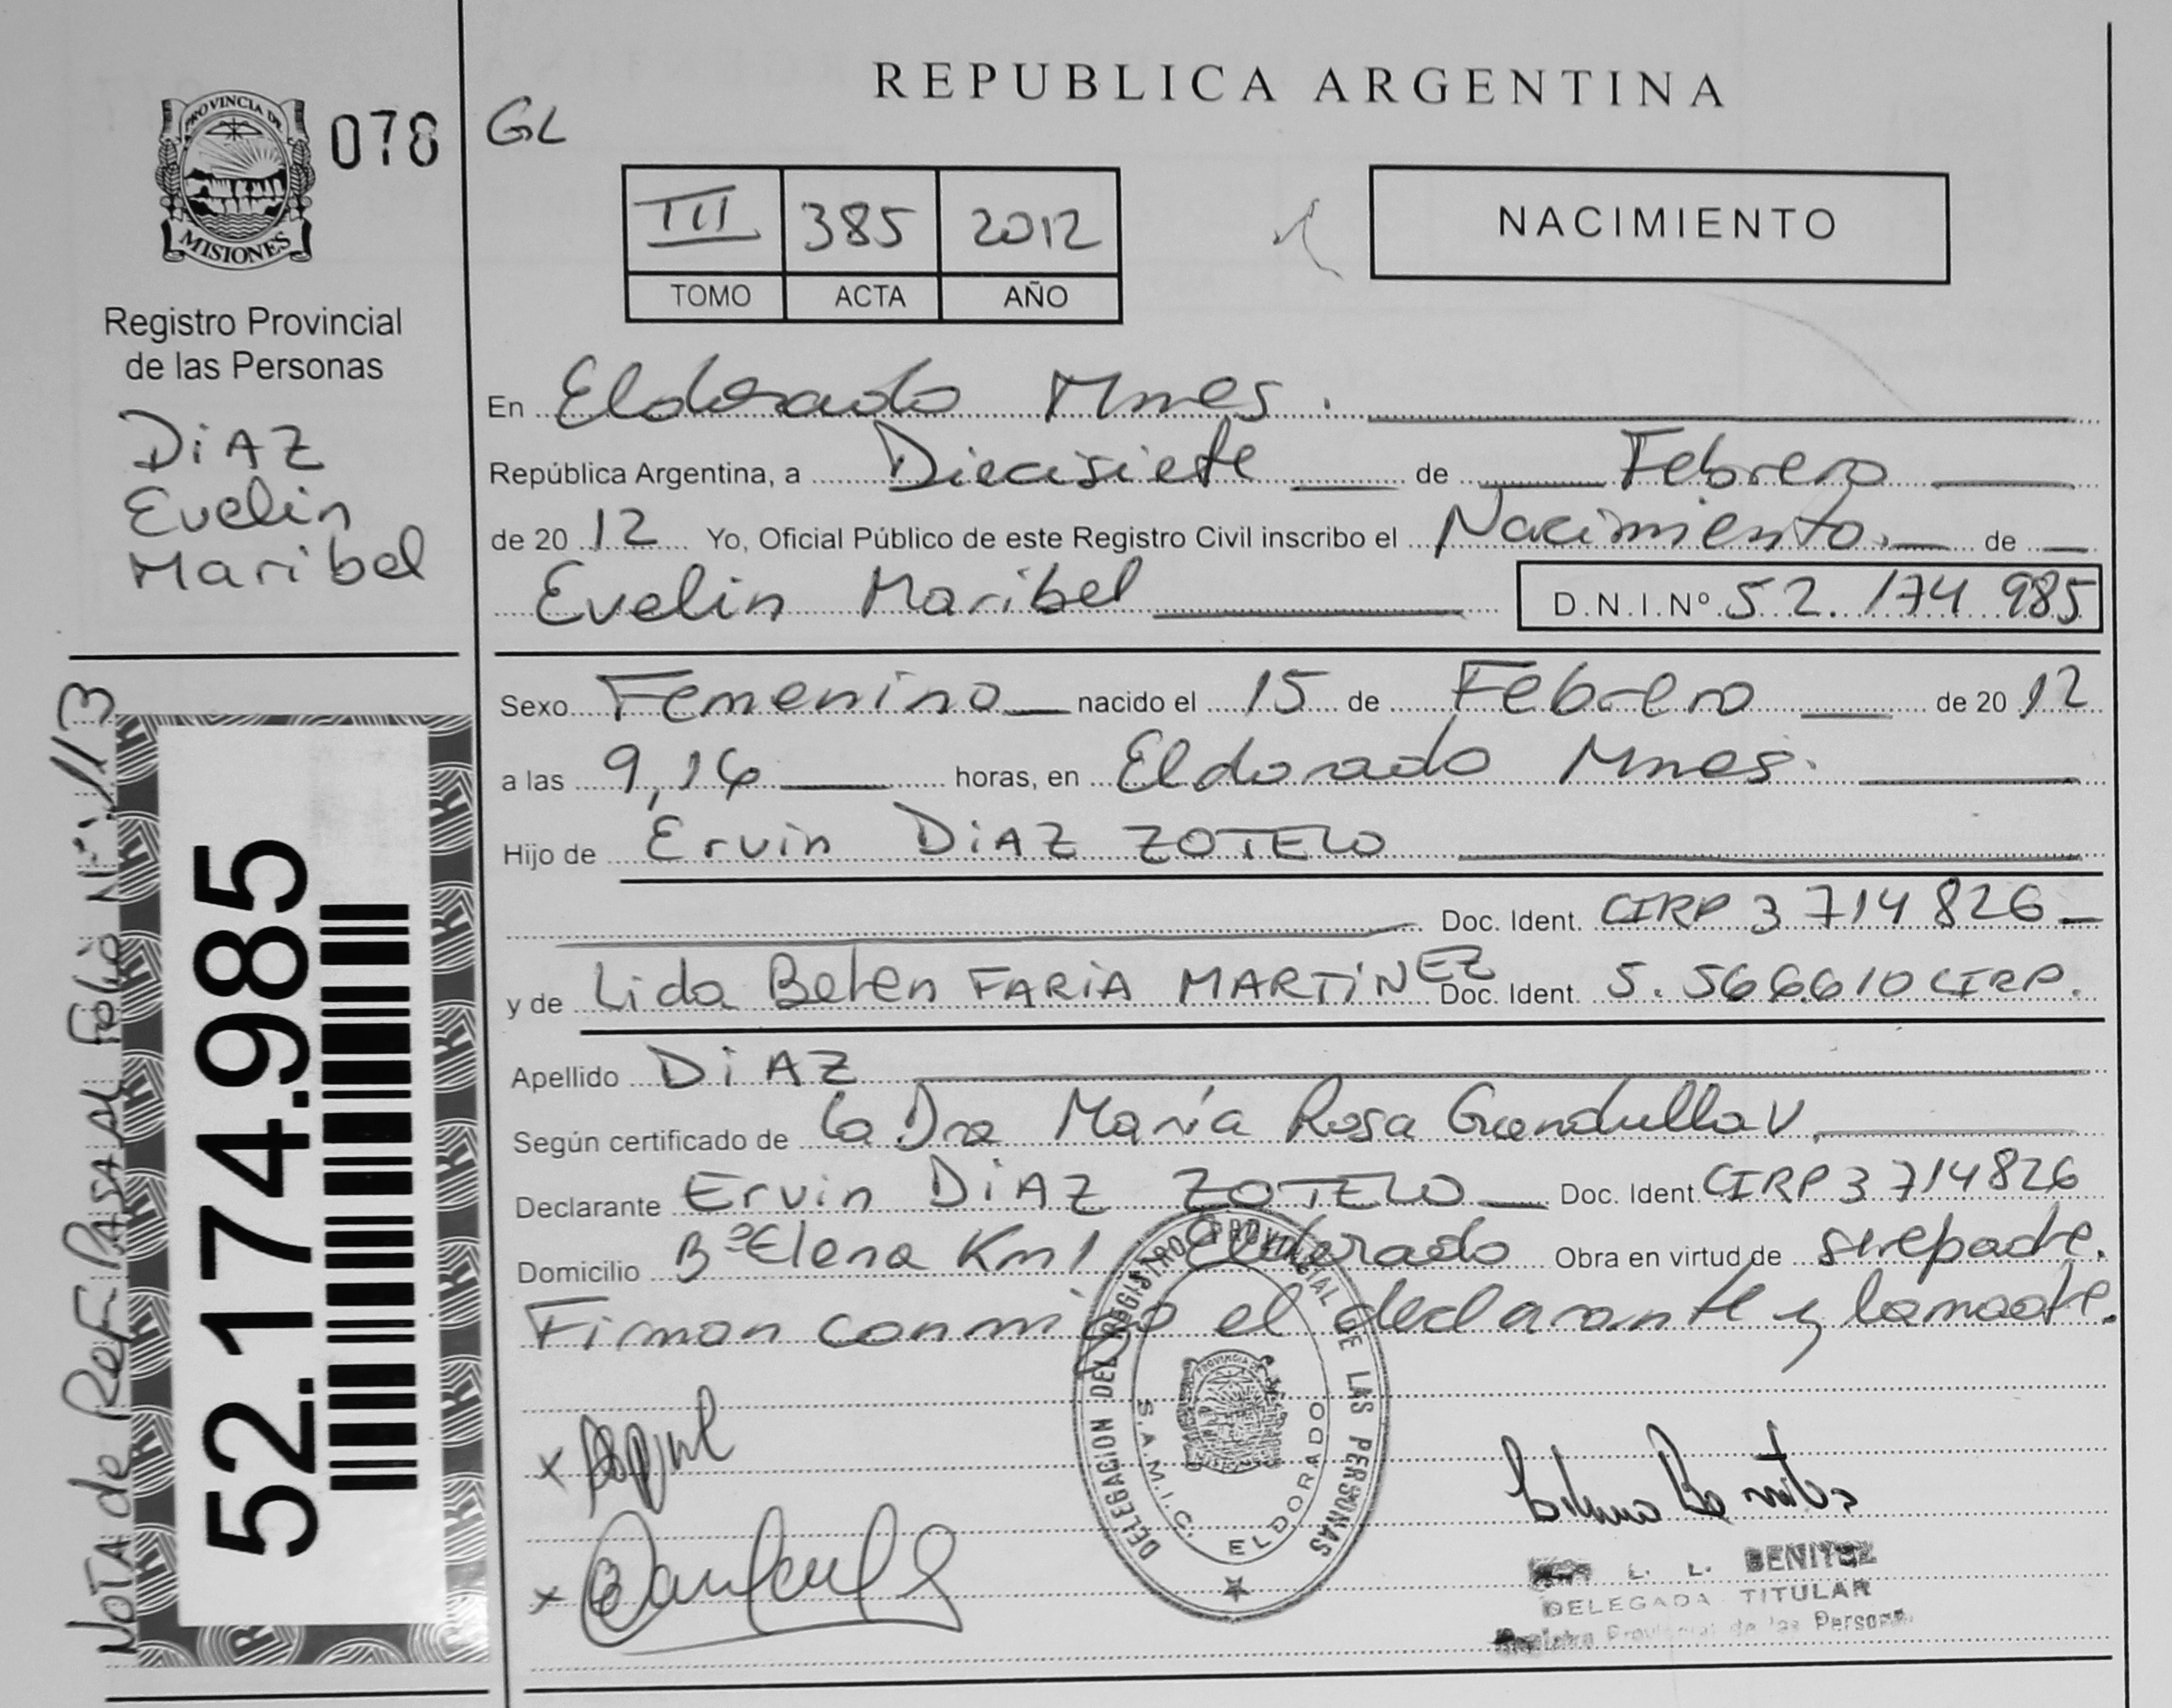 REPUBLICA ARGENTINA
PROVINCIA DE
MISIONES
078
GL
III 385 2012
TOMO ACTA AÑO
NACIMIENTO
Registro Provincial
de las Personas
DiAZ
Evelin
Maribel
En Eldorado Mnes.
República Argentina, a Diecisiete de Febrero
de 20 12 Yo, Oficial Público de este Registro Civil inscribo el Nacimiento. de
Evelin Maribel D.N.I.Nº 52.174 985
Sexo Femenino nacido el 15 de Febrero de 20 12
a las 9,14 horas, en Eldorado Mnes.
Hijo de Ervin DiAZ ZOTELO
Doc. Ident. CIRP 3 714 826
y de Lida Belen FARIA MARTINEZ Doc. Ident. 5.566610 CIRP.
Apellido DiAZ
Según certificado de la Dra María Rosa V.
Declarante Ervin DiAZ ZOTELO Doc. Ident. CIRP 3 714826
Domicilio Bº Elena Km 1 Eldorado Obra en virtud de ser el padre.
Firman conmigo el declarante y la madre.
NOTA de REF. PASA AL Folio Nº: 113
52.174.985
DELEGACION DEL REGISTRO PROVINCIAL DE LAS PERSONAS
S.A.M.I.C. ELDORADO
L. L. BENITEZ
DELEGADA TITULAR
Registro Provincial de las Personas